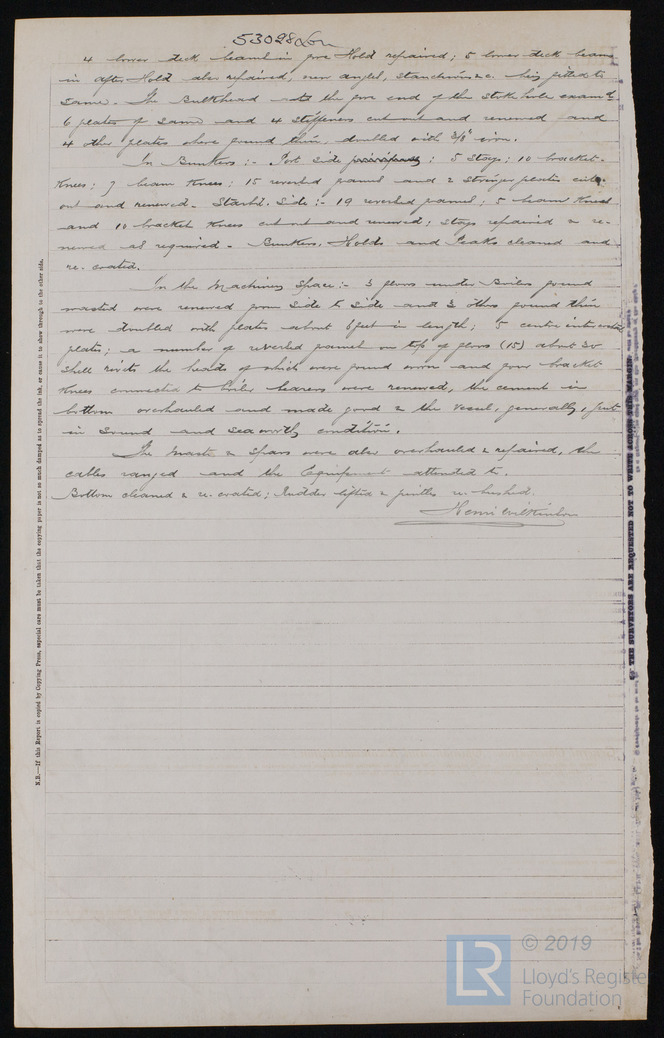 53028 Lon
4 lower deck beams in fore Hold repaired; 5 lower deck beams
in after Hold also repaired, new angles, stanchions &c. being fitted to
same. The Bulkhead at the fore end of the stoke hole exam'd
6 plates of same and 4 stiffeners cut out and renewed and
4 other plates where found thin, doubled with 3/8" iron.
In Bunkers :- Port Side : 5 Stays; 10 bracket-
Knees; 7 beam Knees; 15 reversed frames and 2 Stringer plates cut
out and renewed. Starbd. Side :- 19 reversed frames; 5 beam Knees
and 10 bracket Knees cut out and renewed; Stays repaired & re-
newed as required. Bunkers, Holds and Peaks cleaned and
re-coated.
In the Machinery Space :- 3 floors under Boilers found
wasted were renewed from side to side and 3 others found thin
were doubled with plates about 6 feet in length; 5 centre intercostal
plates; a number of reversed frames on top of floors (15) about 30
Shell rivets the heads of which were found worn and four bracket
Knees connected to boiler bearers were renewed, the cement in
bottom overhauled and made good & the vessel, generally, put
in sound and seaworthy condition.
The Masts & Spars were also overhauled & repaired, the
cables ranged and the Equipment attended to.
Bottom cleaned & re-coated; Rudder lifted & pintles re-bushed.
N.B.—If this Report is copied by Copying Press, especial care must be taken that the copying paper is not so much damped as to spread the ink, or cause it to show through to the other side.
THE SURVEYORS ARE REQUESTED NOT TO WRITE ACROSS THIS MARGIN
LR
© 2019
Lloyd's Register
Foundation